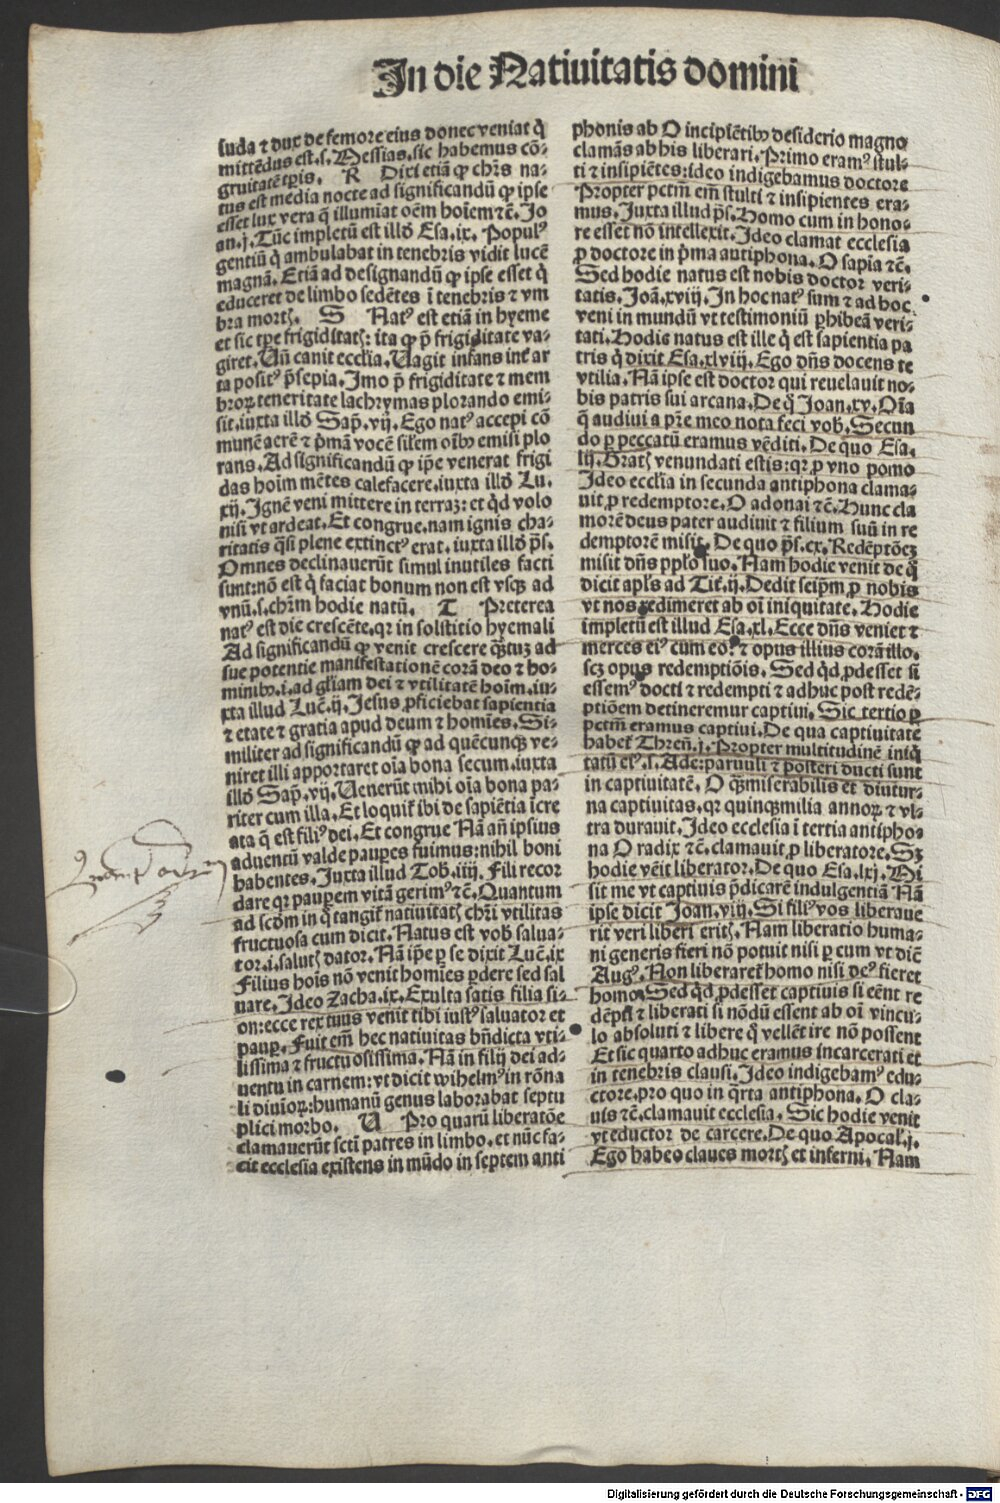 In die Natiuitatis domini
iuda ⁊ dux de femore eius donec veniat q̄
mittēdus est.s. Messias.sic habemus cō-
gruitatē tp̄is. R Dixi etiā ꝙ chr̄s na-
tus est media nocte ad significandū ꝙ ipse
esset lux vera q̄ illumiat oēm hoīem ⁊c̄. Io
an.j. Tūc impletū est illḋ Esa.ix. Populꝰ
gentiū q̄ ambulabat in tenebris vidit lucē
magnā. Etiā ad designandū ꝙ ipse esset q̄
educeret de limbo sedētes ī tenebris ⁊ vm
bra morṫꝭ. S Natꝰ est etiā in hyeme
et sic tꝑe frigiditatꝭ: ita ꝙ p̄ frigiditate va-
giret. Vn̄ canit eccl'ia. Vagit infans int̓ ar
ta positꝰ p̄sepia. Imo p̄ frigiditate ⁊ mem
broꝝ teneritate lachrymas plorando emi-
sit.iuxta illḋ Sap̄. vij. Ego natꝰ accepi cō
munē aerē ⁊ p̄mā vocē sil'em oībꝰ emisi plo
rans. Ad significandū ꝙ ip̄e venerat frigi
das hoīm mētes calefacere.iuxta illḋ Lu.
xij. Ignē veni mittere in terraꝫ: et qḋ volo
nisi vt ardeat. Et congrue.nam ignis cha-
ritatis q̄si plene extinctꝰ erat. iuxta illḋ p̄s.
Omnes declinauerūt simul inutiles facti
sunt: nō est q̄ faciat bonum non est vsqꝫ ad
vnū.s.chr̄m hodie natū. T Preterea
natꝰ est die crescēte.qꝛ in solstitio hyemali
Ad significandū ꝙ venit crescere q̄ꝫtuꝫ ad
sue potentie manifestationē corā deo ⁊ ho-
minibꝰ.i.ad gl'iam dei ⁊ vtilitatē hoīm.iu-
xta illud Luc̄.ij. Iesus ꝓficiebat sapientia
⁊ etate ⁊ gratia apud deum ⁊ homīes. Si-
militer ad significandū ꝙ ad quēcunqꝫ ve-
niret illi apportaret oīa bona secum.iuxta
illḋ Sap̄. vij. Venerūt mihi oīa bona pa-
riter cum illa. Et loquit̓ ibi de sapiētia īcre
ata q̄ est filiꝰ dei. Et congrue Nā an̄ ipsius
aduentū valde pauꝑes fuimus: nihil boni
habentes. Iuxta illud Tob̓. iiij. Fili recor
dare qꝛ pauꝑem vitā gerimꝰ ⁊c̄. Quantum
ad scḋm in q̄ tangit̓ natiuitatꝭ chr̄i vtilitas
fructuosa cum dicit. Natus est vob̓ salua-
tor.i.salutꝭ dator. Nā ip̄e ꝑ se dixit Luc̄.ix
Filius hoīs nō venit homīes ꝑdere sed sal
uare. Ideo Zacha.ix. Exulta satis filia si-
on: ecce rex tuus venit tibi iustꝰ saluator et
pauꝑ. Fuit em̄ hec natiuitas bn̄dicta vti-
lissima ⁊ fructuosissima. Nā in filij dei ad-
uentu in carnem: vt dicit wihelmꝰ in rōna
li diuīoꝝ: humanū genus laborabat septu
plici morbo. V Pro quarū liberatōe
clamauerūt sct̄i patres in limbo.et nūc fa-
cit ecclesia existens in mūdo in septem anti
phonis ab O incipiētibꝰ desiderio magno
clamās ab his liberari. Primo eramꝰ stul-
ti ⁊ insipiētes: ideo indigebamus doctore
Propter pctm̄ em̄ stulti ⁊ insipientes era-
mus. Iuxta illud p̄s. Homo cum in hono-
re esset nō intellexit. Ideo clamat ecclesia
ꝓ doctore in p̄ma antiphona. O sapīa ⁊c̄.
Sed hodie natus est nobis doctor veri-
tatis. Ioā.xviij. In hoc natꝰ sum ⁊ ad hoc
veni in mundū vt testimoniū ꝑhibeā veri-
tati. Hodie natus est ille q̄ est sapientia pa
tris q̄ dixit Esa.xlviij. Ego dn̄s docens te
vtilia. Nā ipse est doctor qui reuelauit no-
bis patris sui arcana. De q̄ Ioan.xv. Oīa
q̄ audiui a pr̄e meo nota feci vob̓. Secun
do ꝑ peccatū eramus vēditi. De quo Esa.
lij. Gratꝭ venundati estis: qꝛ ꝓ vno pomo
Ideo eccl'ia in secunda antiphona clama-
uit ꝓ redemptore. O adonai ⁊c̄. Hunc cla
morē deus pater audiuit ⁊ filium suū in re
demptorē misit. De quo p̄s.cx. Redēptōeꝫ
misit dn̄s ppl'o suo. Nam hodie venit de q̄
dicit apl's ad Tit̓.ij. Dedit seip̄m ꝓ nobis
vt nos redimeret ab oī iniquitate. Hodie
impletū est illud Esa.xl. Ecce dn̄s veniet ⁊
merces eiꝰ cum eo: ⁊ opus illius corā illo.
scꝫ opus redemptiōis. Sed qḋ ꝓdesset si
essemꝰ docti ⁊ redempti ⁊ adhuc post redē-
ptiōem detineremur captiui. Sic tertio ꝑ
pctm̄ eramus captiui. De qua captiuitate
habet̓ Thren̄.j. Propter multitudinē iniq̄
tatū eiꝰ.s. Ade: paruuli ⁊ posteri ducti sunt
in captiuitatē. O q̄ꝫmiserabilis et diutur-
na captiuitas.qꝛ quinqꝫmilia annoꝝ ⁊ vl-
tra durauit. Ideo ecclesia ī tertia antipho-
na O radix ⁊c̄. clamauit ꝓ liberatore. Sꝫ
hodie vēit liberator. De quo Esa.lxj. Mi
sit me vt captiuis p̄dicarē indulgentiā Nā
ipse dicit Ioan. viij. Si filiꝰ vos liberaue
rit veri liberi eritꝭ. Nam liberatio huma-
ni generis fieri nō potuit nisi ꝑ eum vt dic̄
Augꝰ. Non liberaret̓ homo nisi deꝰ fieret
homo. Sed qḋ ꝓdesset captiuis si eēnt re
dēpti ⁊ liberati si nōdū essent ab oī vincu-
lo absoluti ⁊ libere q̄ vellēt ire nō possent
Et sic quarto adhuc eramus incarcerati et
in tenebris clausi. Ideo indigebamꝰ edu-
ctore.pro quo in q̄rta antiphona. O cla-
uis ⁊c̄. clamauit ecclesia. Sic hodie venit
vt eductor de carcere. De quo Apocal̓.j.
Ego habeo claues mortꝭ et inferni. Nam
Digitalisierung gefördert durch die Deutsche Forschungsgemeinschaft - DFG